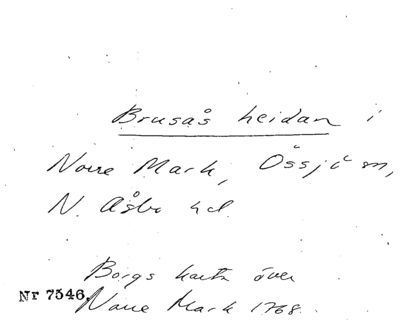 Brusås heidan i
Norre Mark, Össjö sn,
N. Åsbo hd.
Borgs karta över
Nr 7546. Norre Mark 1768.